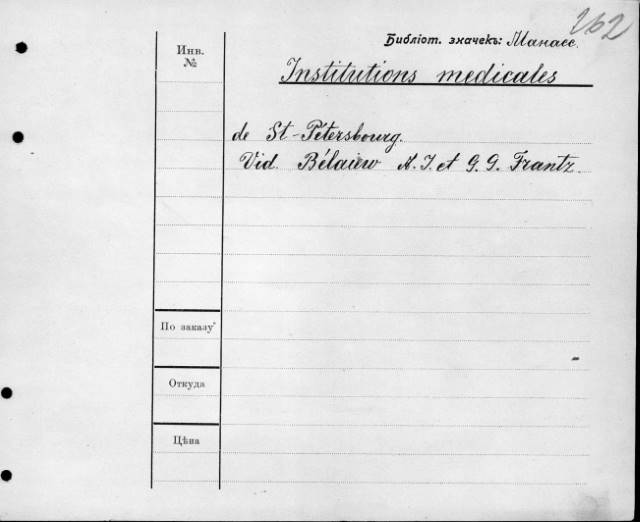 262
Библіот. значекъ: Манасс.
Инв.
№
Institutions medicales
de St-Pétersbourg.
Vid. Bélaiew A. I. et G. G. Frantz.
По заказу
Откуда
Цѣна